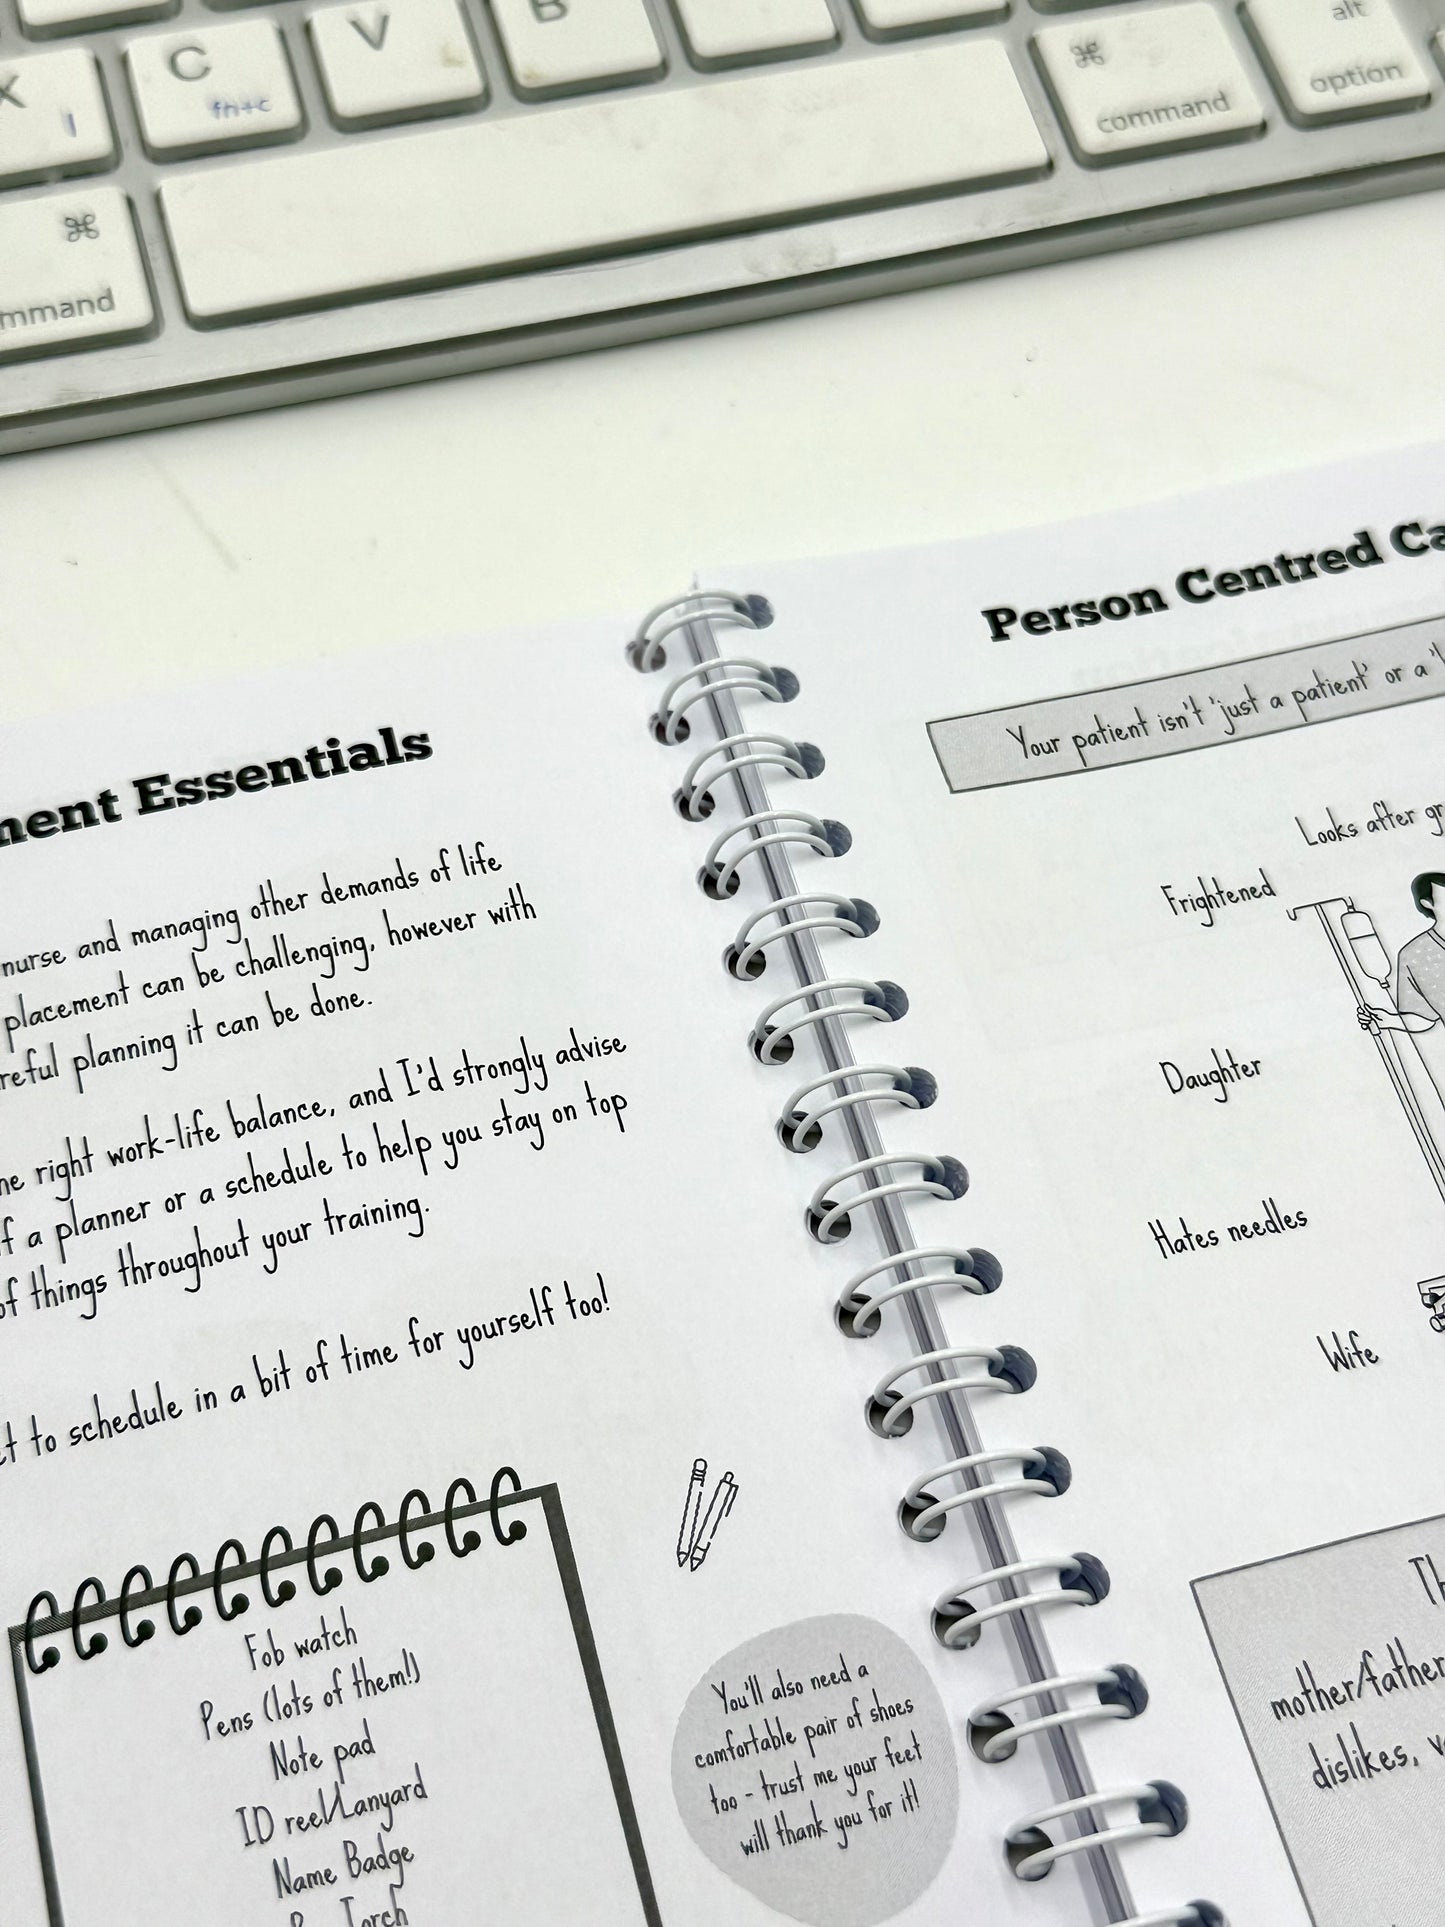 X
C
fn+c
V
B
⌘
command
alt
option
⌘
mmand
ment Essentials
nurse and managing other demands of life
placement can be challenging, however with
reful planning it can be done.
ne right work-life balance, and I'd strongly advise
f a planner or a schedule to help you stay on top
of things throughout your training.
et to schedule in a bit of time for yourself too!
Fob watch
Pens (lots of them!)
Note pad
ID reel/Lanyard
Name Badge
Torch
You'll also need a
comfortable pair of shoes
too - trust me your feet
will thank you for it!
Person Centred Ca
Your patient isn't 'just a patient' or a '
Looks after gr
Frightened
Daughter
Hates needles
Wife
Th
mother/father
dislikes, v